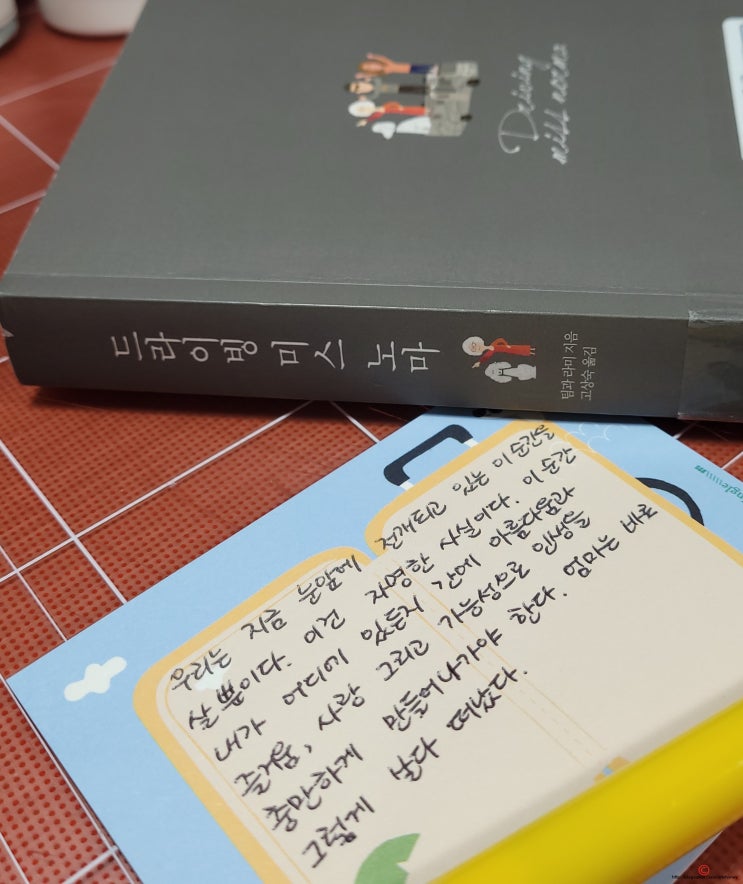 Driving
miss norma
드라이빙 미스 노마
팀과 라미 지음
고상숙 옮김
우리는 지금 눈앞에 전개되고 있는 이 순간을
살 뿐이다. 이건 자명한 사실이다. 이 순간
내가 어디에 있든지 간에 아름다움과
즐거움, 사랑 그리고 가능성으로 인생을
충만하게 만들어나가야 한다. 엄마는 바로
그렇게 살다 떠났다.